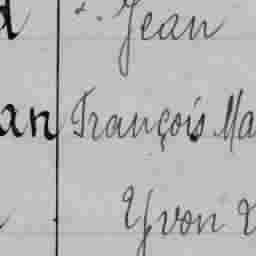 d Jean
an François Ma
Yvon